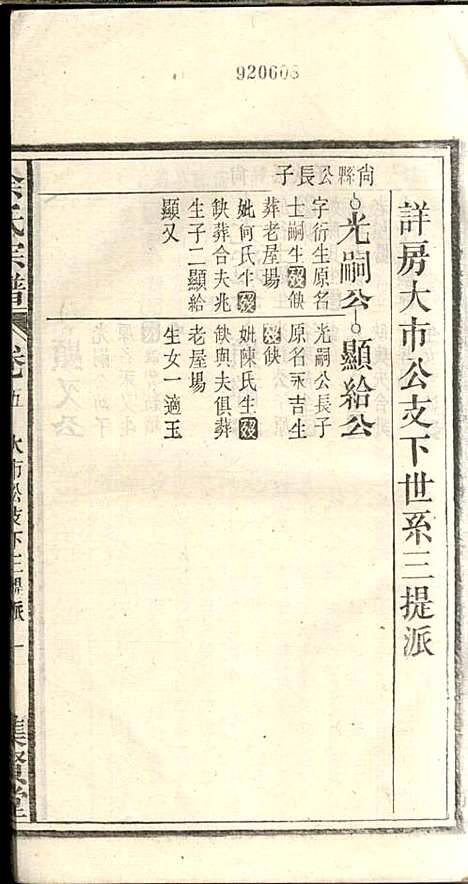 920608
詳房大市公支下世系三提派
尙縣公長子
光嗣公
字衍生原名
士嗣生歿俱
葬老屋場
妣何氏生歿
缺葬合夫兆
生子二顯給
顯又
顯給公
光嗣公長子
原名永吉生
歿俱
妣陳氏生歿
俱與夫俱葬
老屋場
生女一適玉
氏宗譜
卷五
大市公支下三提派
一
集賢堂